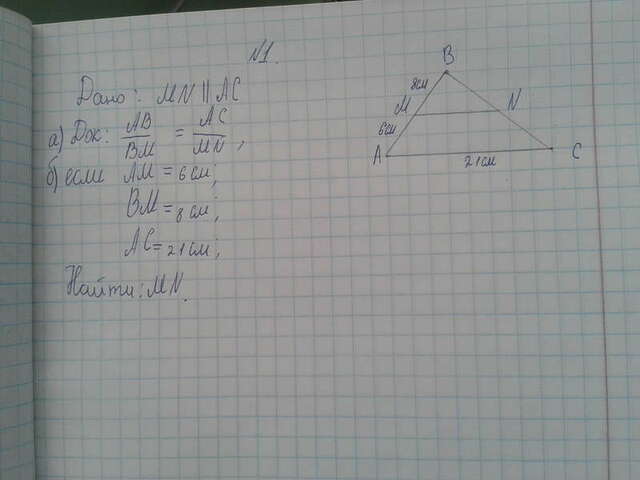 №1.
Дано: MN || AC
а) Док: AB/BM = AC/MN,
б) если AM = 6 см;
BM = 8 см;
AC = 21 см;
Найти: MN.
B
8см
M
N
6см
A
21см
C